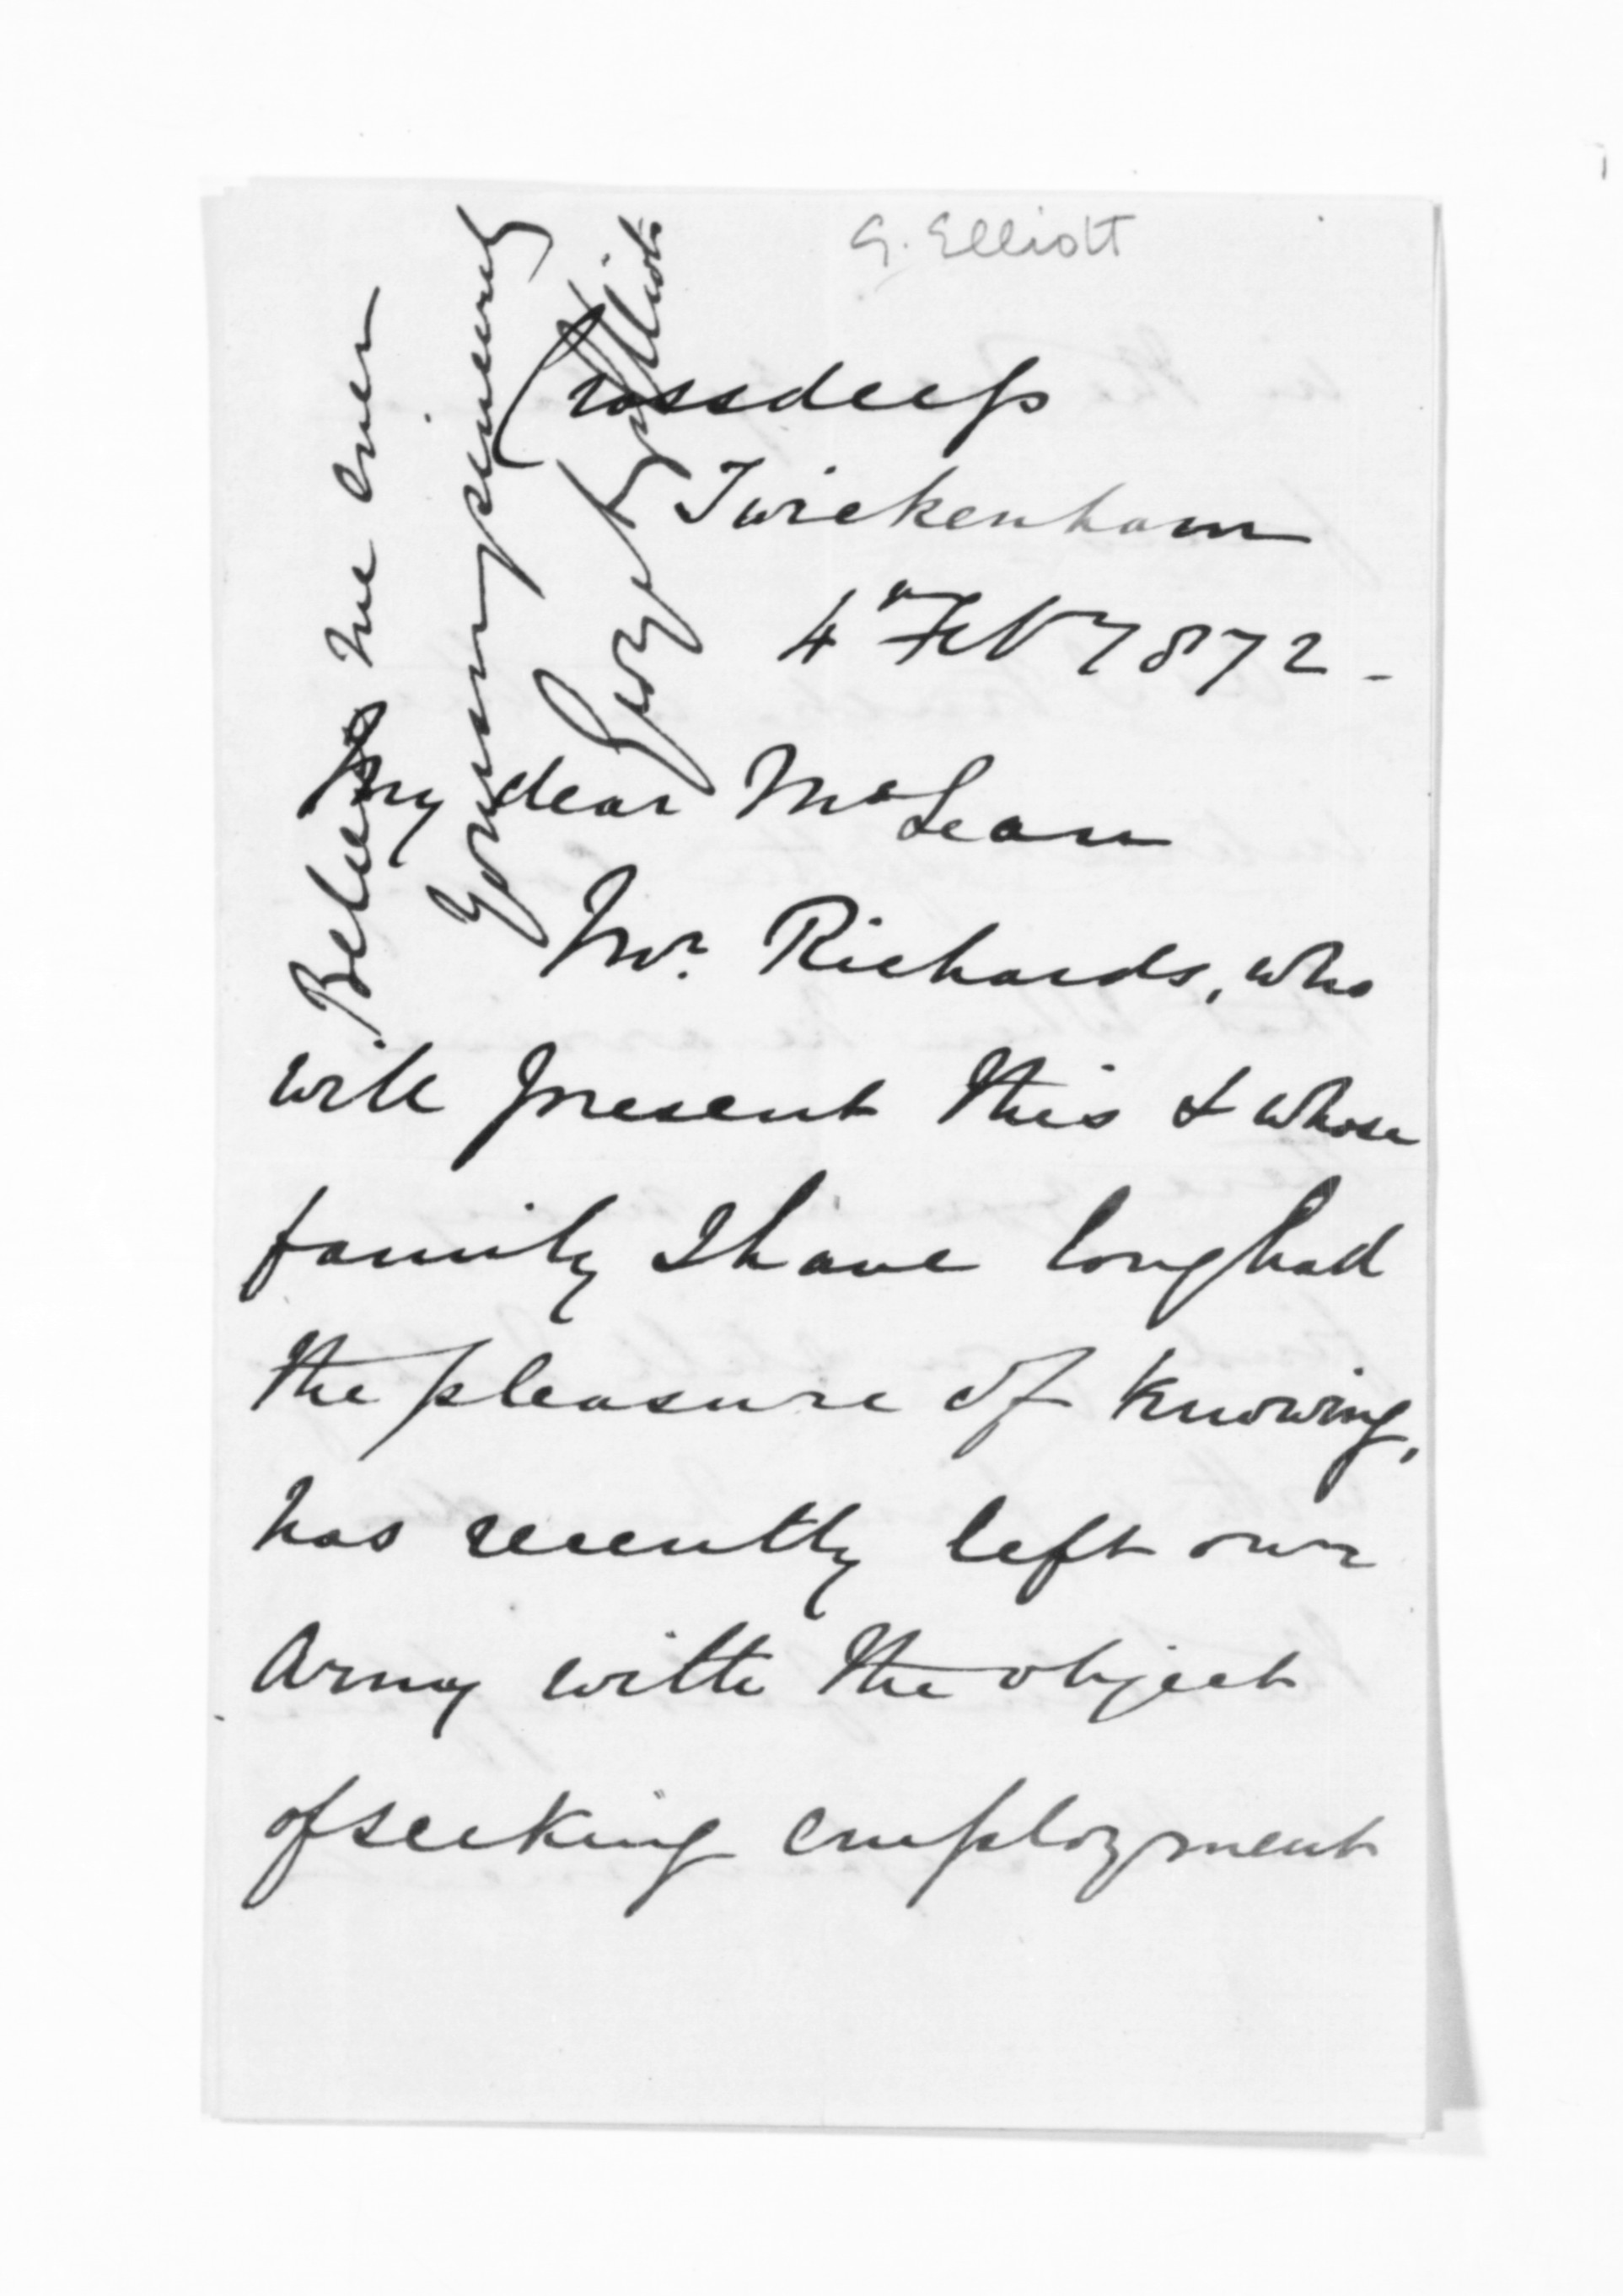 G. Elliott
Crossdeep
Twickenham
4" Feb/ 1872 -
My dear McLean
Mr. Richards, who
will present this & whose
family I have long had
the pleasure of knowing,
has recently left our
Army with the object
of seeking employment
Believe me ever
Yours very sincerely
George Elliott